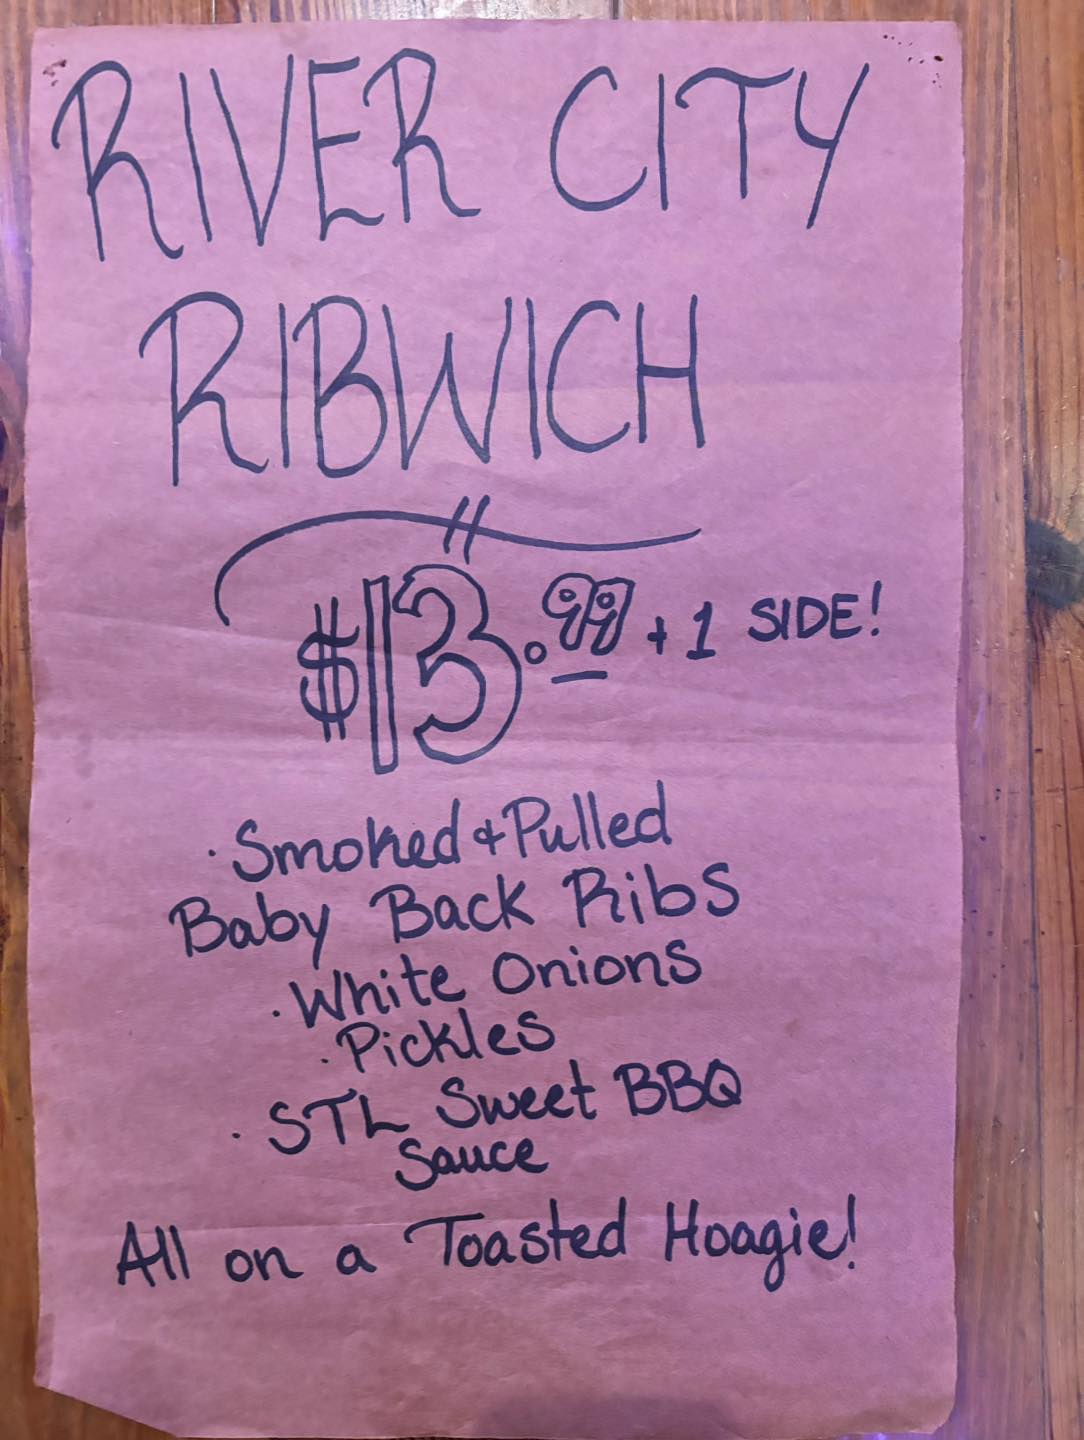 RIVER CITY
RIBWICH
$13.99 + 1 SIDE!
· Smoked + Pulled
Baby Back Ribs
· White Onions
· Pickles
· STL Sweet BBQ
Sauce
All on a Toasted Hoagie!